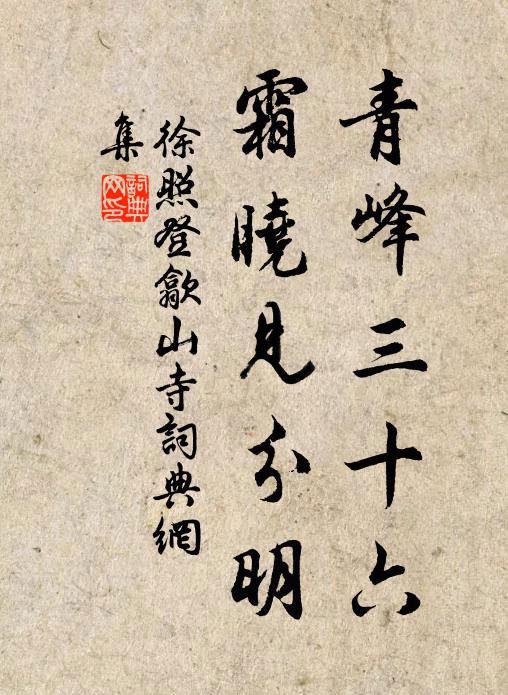 青峰三十六
霜曉見分明
徐照登歙山寺詞典網
集
詞典
网印